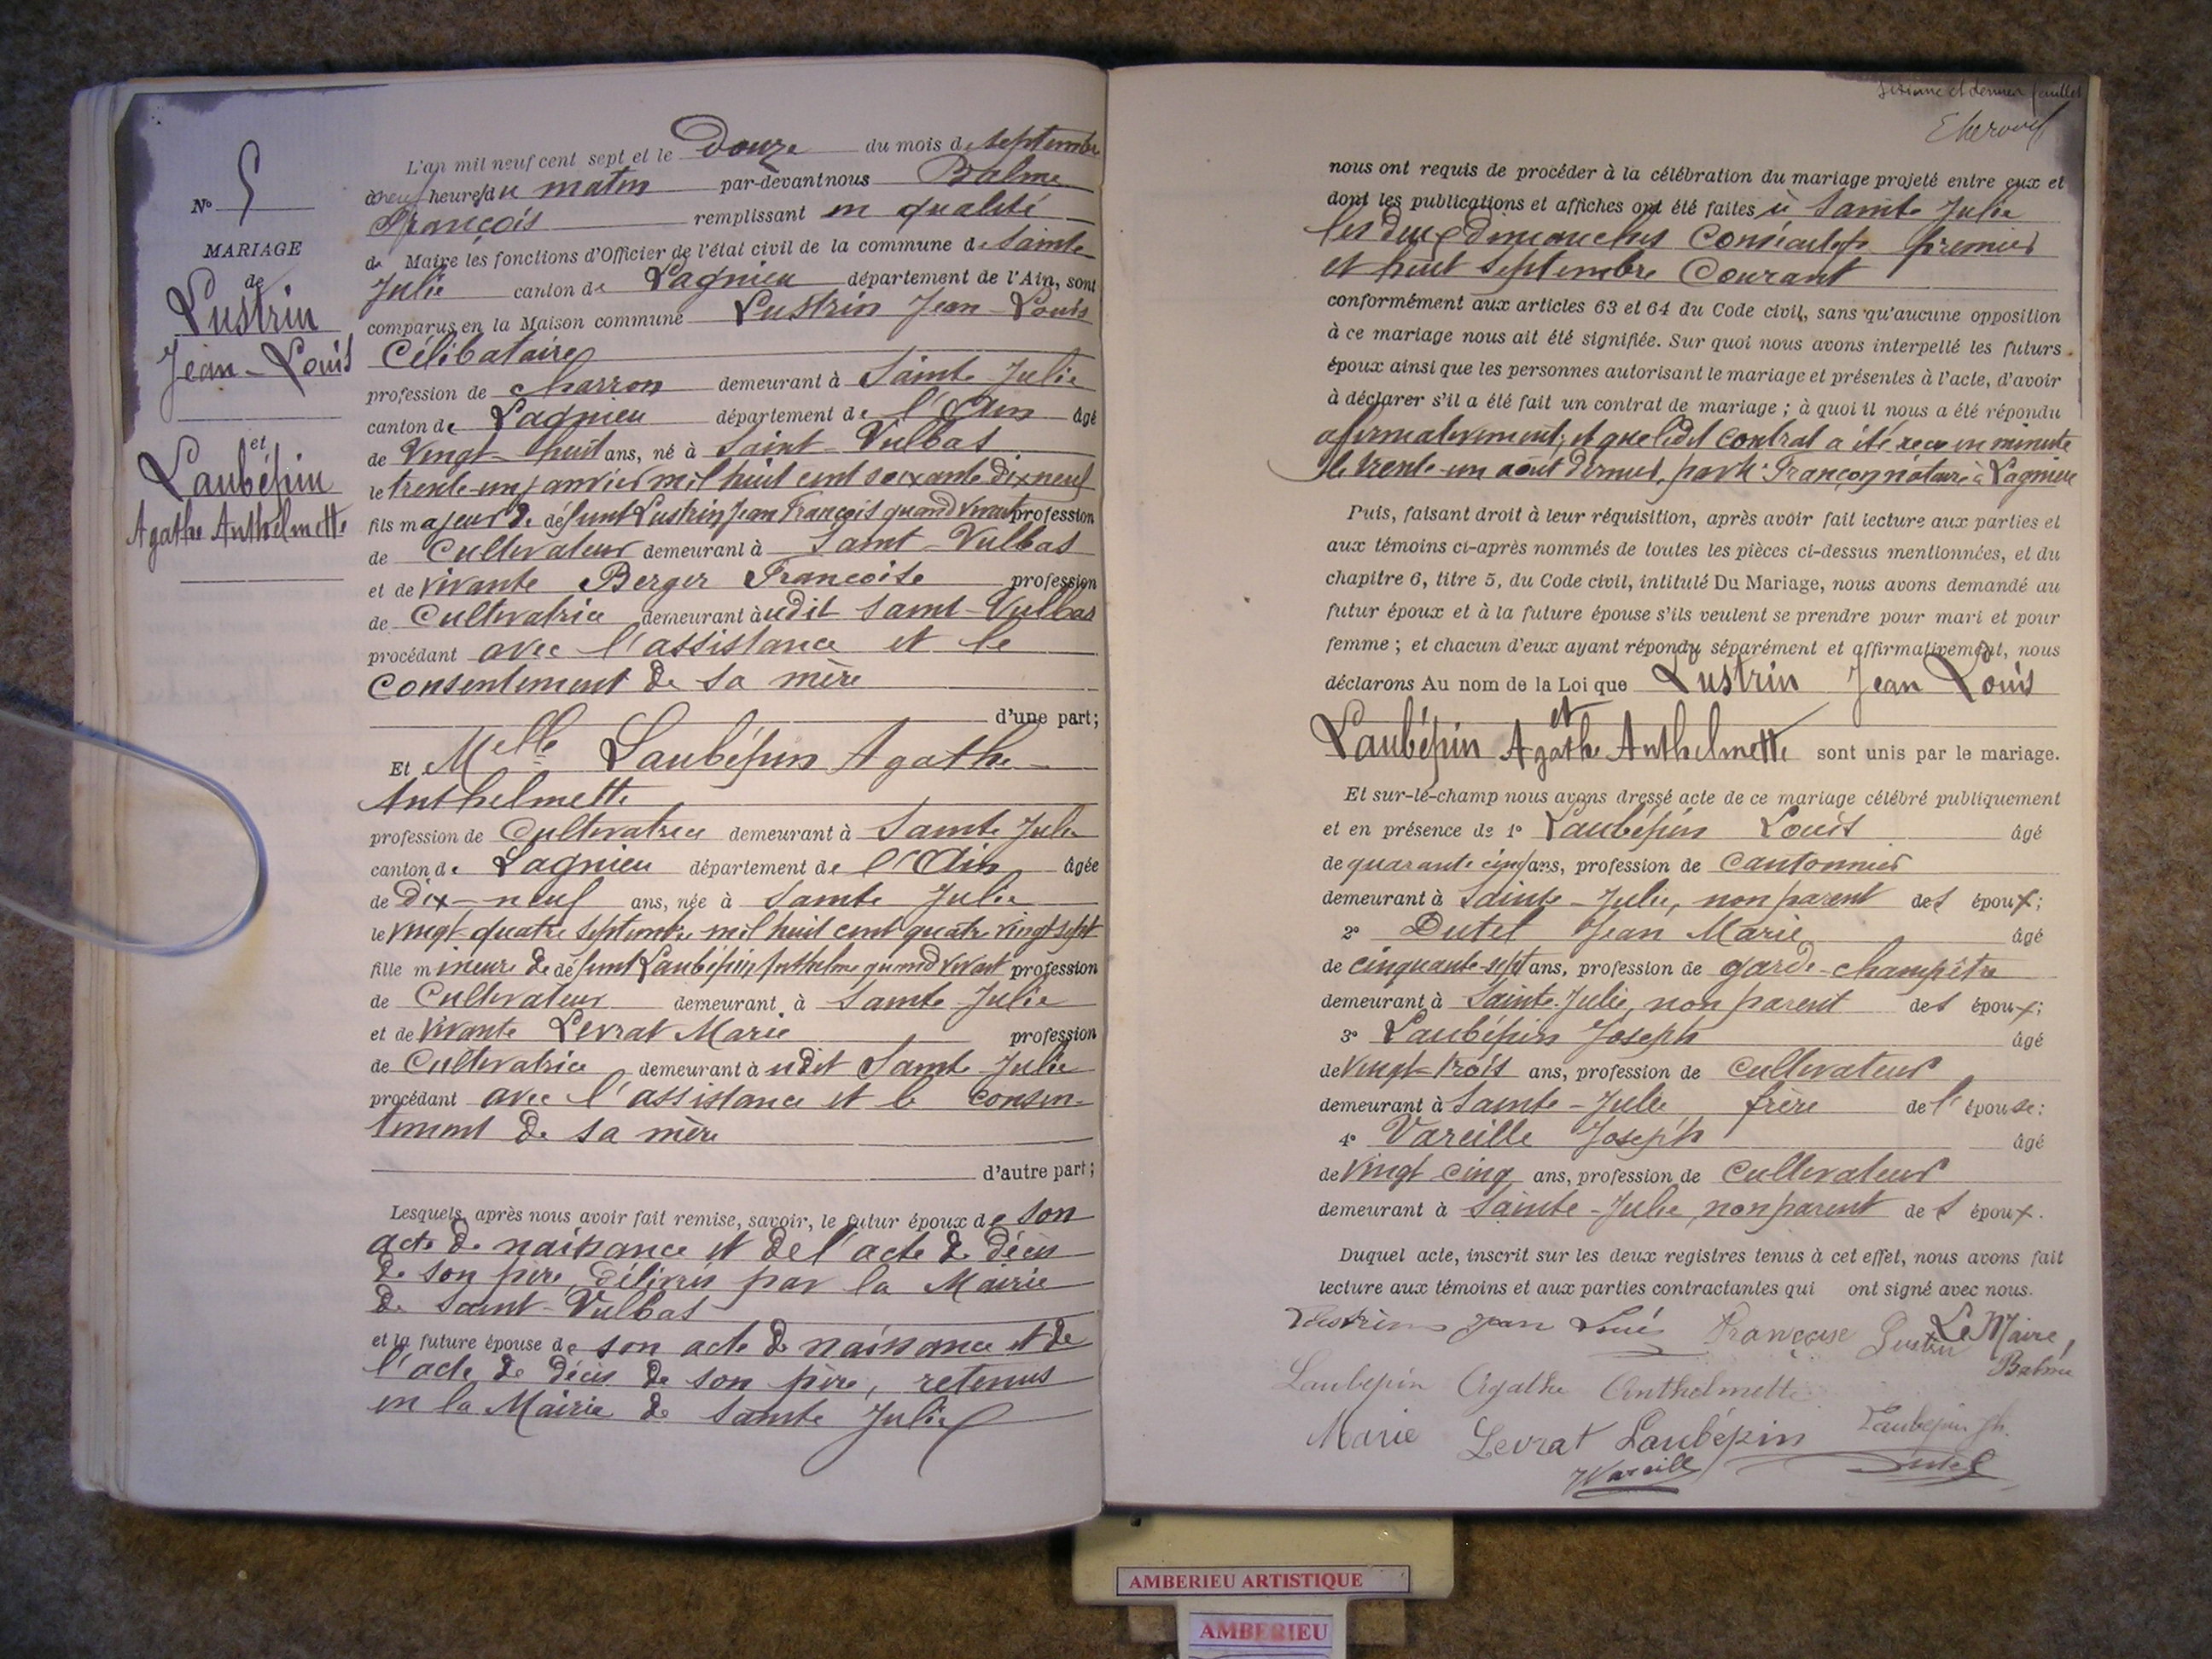 N° 5
MARIAGE
de
Lustrin
Jean-Louis
et
Laubépin
Agathe Anthelmette
L'an mil neuf cent sept et le Douze du mois de septembre
à neuf heures du matin par-devant nous Balme
François remplissant en qualité
de Maire les fonctions d'Officier de l'état civil de la commune de Sainte
Julie canton de Lagnieu département de l'Ain, sont
comparus en la Maison commune Lustrin Jean-Louis
Célibataire
profession de charron demeurant à Sainte Julie
canton de Lagnieu département de l'Ain âgé
de Vingt-huit ans, né à Saint-Vulbas
le trente-un janvier mil huit cent soixante dix neuf
fils majeur de défunt Lustrin Jean François quand vivant profession
de Cultivateur demeurant à Saint-Vulbas
et de vivante Berger Françoise profession
de Cultivatrice demeurant audit Saint-Vulbas
procédant avec l'assistance et le
Consentement de sa mère
d'une part;
Et Melle Laubépin Agathe
Anthelmette
profession de Cultivatrice demeurant à Sainte Julie
canton de Lagnieu département de l'Ain âgée
de Dix-neuf ans, née à Sainte Julie
le vingt-quatre septembre mil huit cent quatre vingt sept
fille mineure de défunt Laubépin Anthelme quand vivant profession
de Cultivateur demeurant à Sainte Julie
et de vivante Levrat Marie profession
de Cultivatrice demeurant à udit Sainte Julie
procédant avec l'assistance et le consen-
tement de sa mère
d'autre part;
Lesquels, après nous avoir fait remise, savoir, le futur époux de son
acte de naissance et de l'acte de décès
de son père, délivrés par la Mairie
de Saint-Vulbas
et la future épouse de son acte de naissance et de
l'acte de décès de son père, retenus
en la Mairie de Sainte Julie
et dernier feuillet
nous ont requis de procéder à la célébration du mariage projeté entre eux et
dont les publications et affiches ont été faites à Sainte Julie
les deux dimanches Consécutifs premier
et huit Septembre Courant
conformément aux articles 63 et 64 du Code civil, sans qu'aucune opposition
à ce mariage nous ait été signifiée. Sur quoi nous avons interpellé les futurs
époux ainsi que les personnes autorisant le mariage et présentes à l'acte, d'avoir
à déclarer s'il a été fait un contrat de mariage; à quoi il nous a été répondu
affirmativement, et que ledit Contrat a été reçu en minute
le trente-un août dernier, par Me Françon notaire à Lagnieu
Puis, faisant droit à leur réquisition, après avoir fait lecture aux parties et
aux témoins ci-après nommés de toutes les pièces ci-dessus mentionnées, et du
chapitre 6, titre 5, du Code civil, intitulé Du Mariage, nous avons demandé au
futur époux et à la future épouse s'ils veulent se prendre pour mari et pour
femme; et chacun d'eux ayant répondu séparément et affirmativement, nous
déclarons Au nom de la Loi que Lustrin Jean Louis
et
Laubépin Agathe Anthelmette sont unis par le mariage.
Et sur-le-champ nous avons dressé acte de ce mariage célébré publiquement
et en présence de 1° Laubépin Louis âgé
de quarante cinq ans, profession de Cantonnier
demeurant à Sainte-Julie, non parent des époux;
2° Dutel Jean Marie âgé
de cinquante-sept ans, profession de garde-champêtre
demeurant à Sainte-Julie, non parent des époux;
3° Laubépin Joseph âgé
de vingt-trois ans, profession de Cultivateur
demeurant à Sainte-Julie frère de l'épouse;
4° Vareille Joseph âgé
de vingt cinq ans, profession de Cultivateur
demeurant à Sainte-Julie, non parent des époux.
Duquel acte, inscrit sur les deux registres tenus à cet effet, nous avons fait
lecture aux témoins et aux parties contractantes qui ont signé avec nous.
Lustrin Jean Louis Françoise Lustrin Le Maire,
Balme
Laubepin Agathe Anthelmette
Marie Levrat Laubépin Laubepin Jh.
JVareille Dutel
AMBERIEU ARTISTIQUE
AMBERIEU